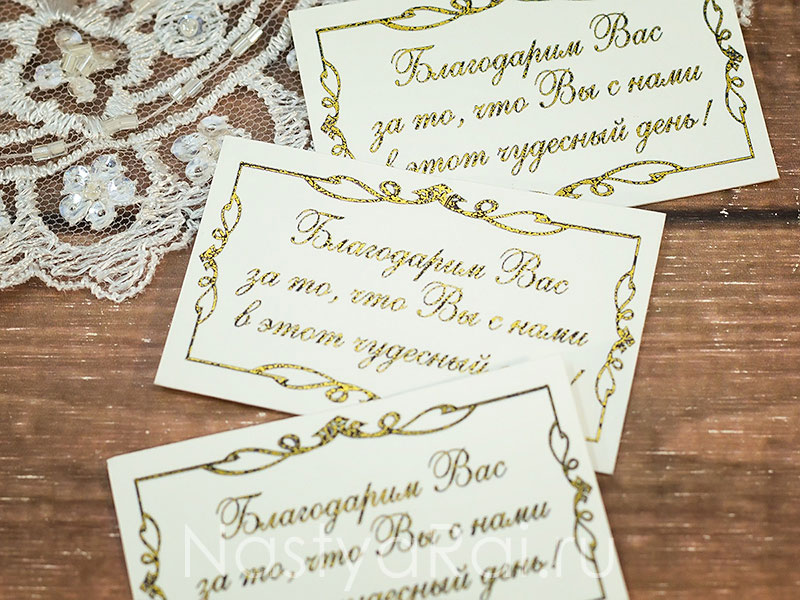 Благодарим Вас
за то, что Вы с нами
в этот чудесный день!
Благодарим Вас
за то, что Вы с нами
в этот чудесный !
Благодарим Вас
за то, что Вы с нами
чудесный день!
NastyaRai.ru